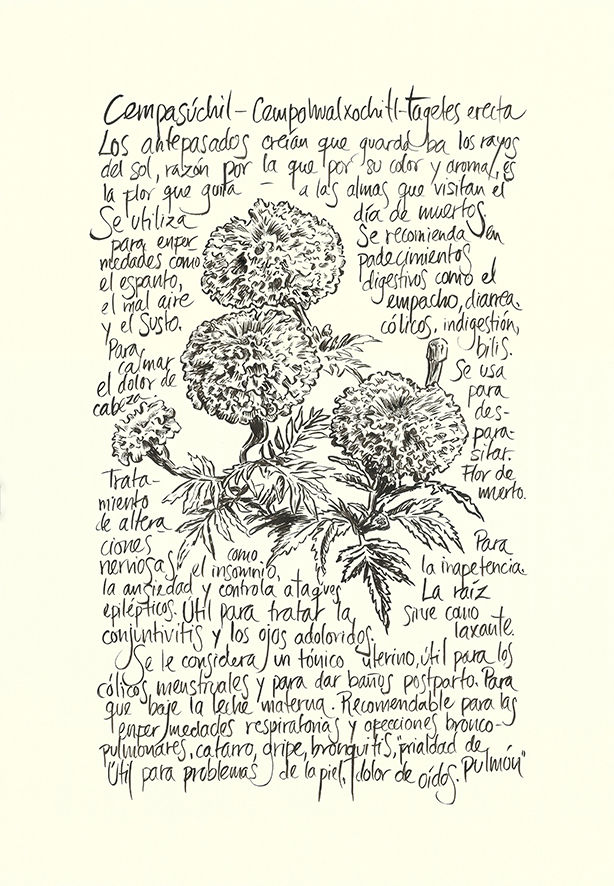 Cempasúchil – Cempohualxochitl – tagetes erecta
Los antepasados creían que guardaba los rayos
del sol, razón por la que por su color y aroma, es
la flor que guía – a las almas que visitan el
día de muertos
Se utiliza
para enfer
medades como
el espanto,
el mal aire
y el susto.
Para
calmar
el dolor de
cabeza.
Se recomienda en
padecimientos
digestivos como el
empacho, diarrea
cólicos, indigestión,
bilis.
Se usa
para
des-
para-
sitar.
Flor de
muerto.
Trata-
miento
de altera
ciones
nerviosas como
el insomnio,
la ansiedad y controla ataques
epilépticos. Útil para tratar la
conjuntivitis y los ojos adoloridos.
Para
la inapetencia.
La raíz
sirve como
laxante.
Se le considera un tónico uterino, útil para los
cólicos menstruales y para dar baños postparto. Para
que baje la leche materna. Recomendable para las
enfermedades respiratorias y afecciones bronco-
pulmonares, catarro, gripe, bronquitis, "frialdad de
pulmón"
Útil para problemas de la piel, dolor de oídos.